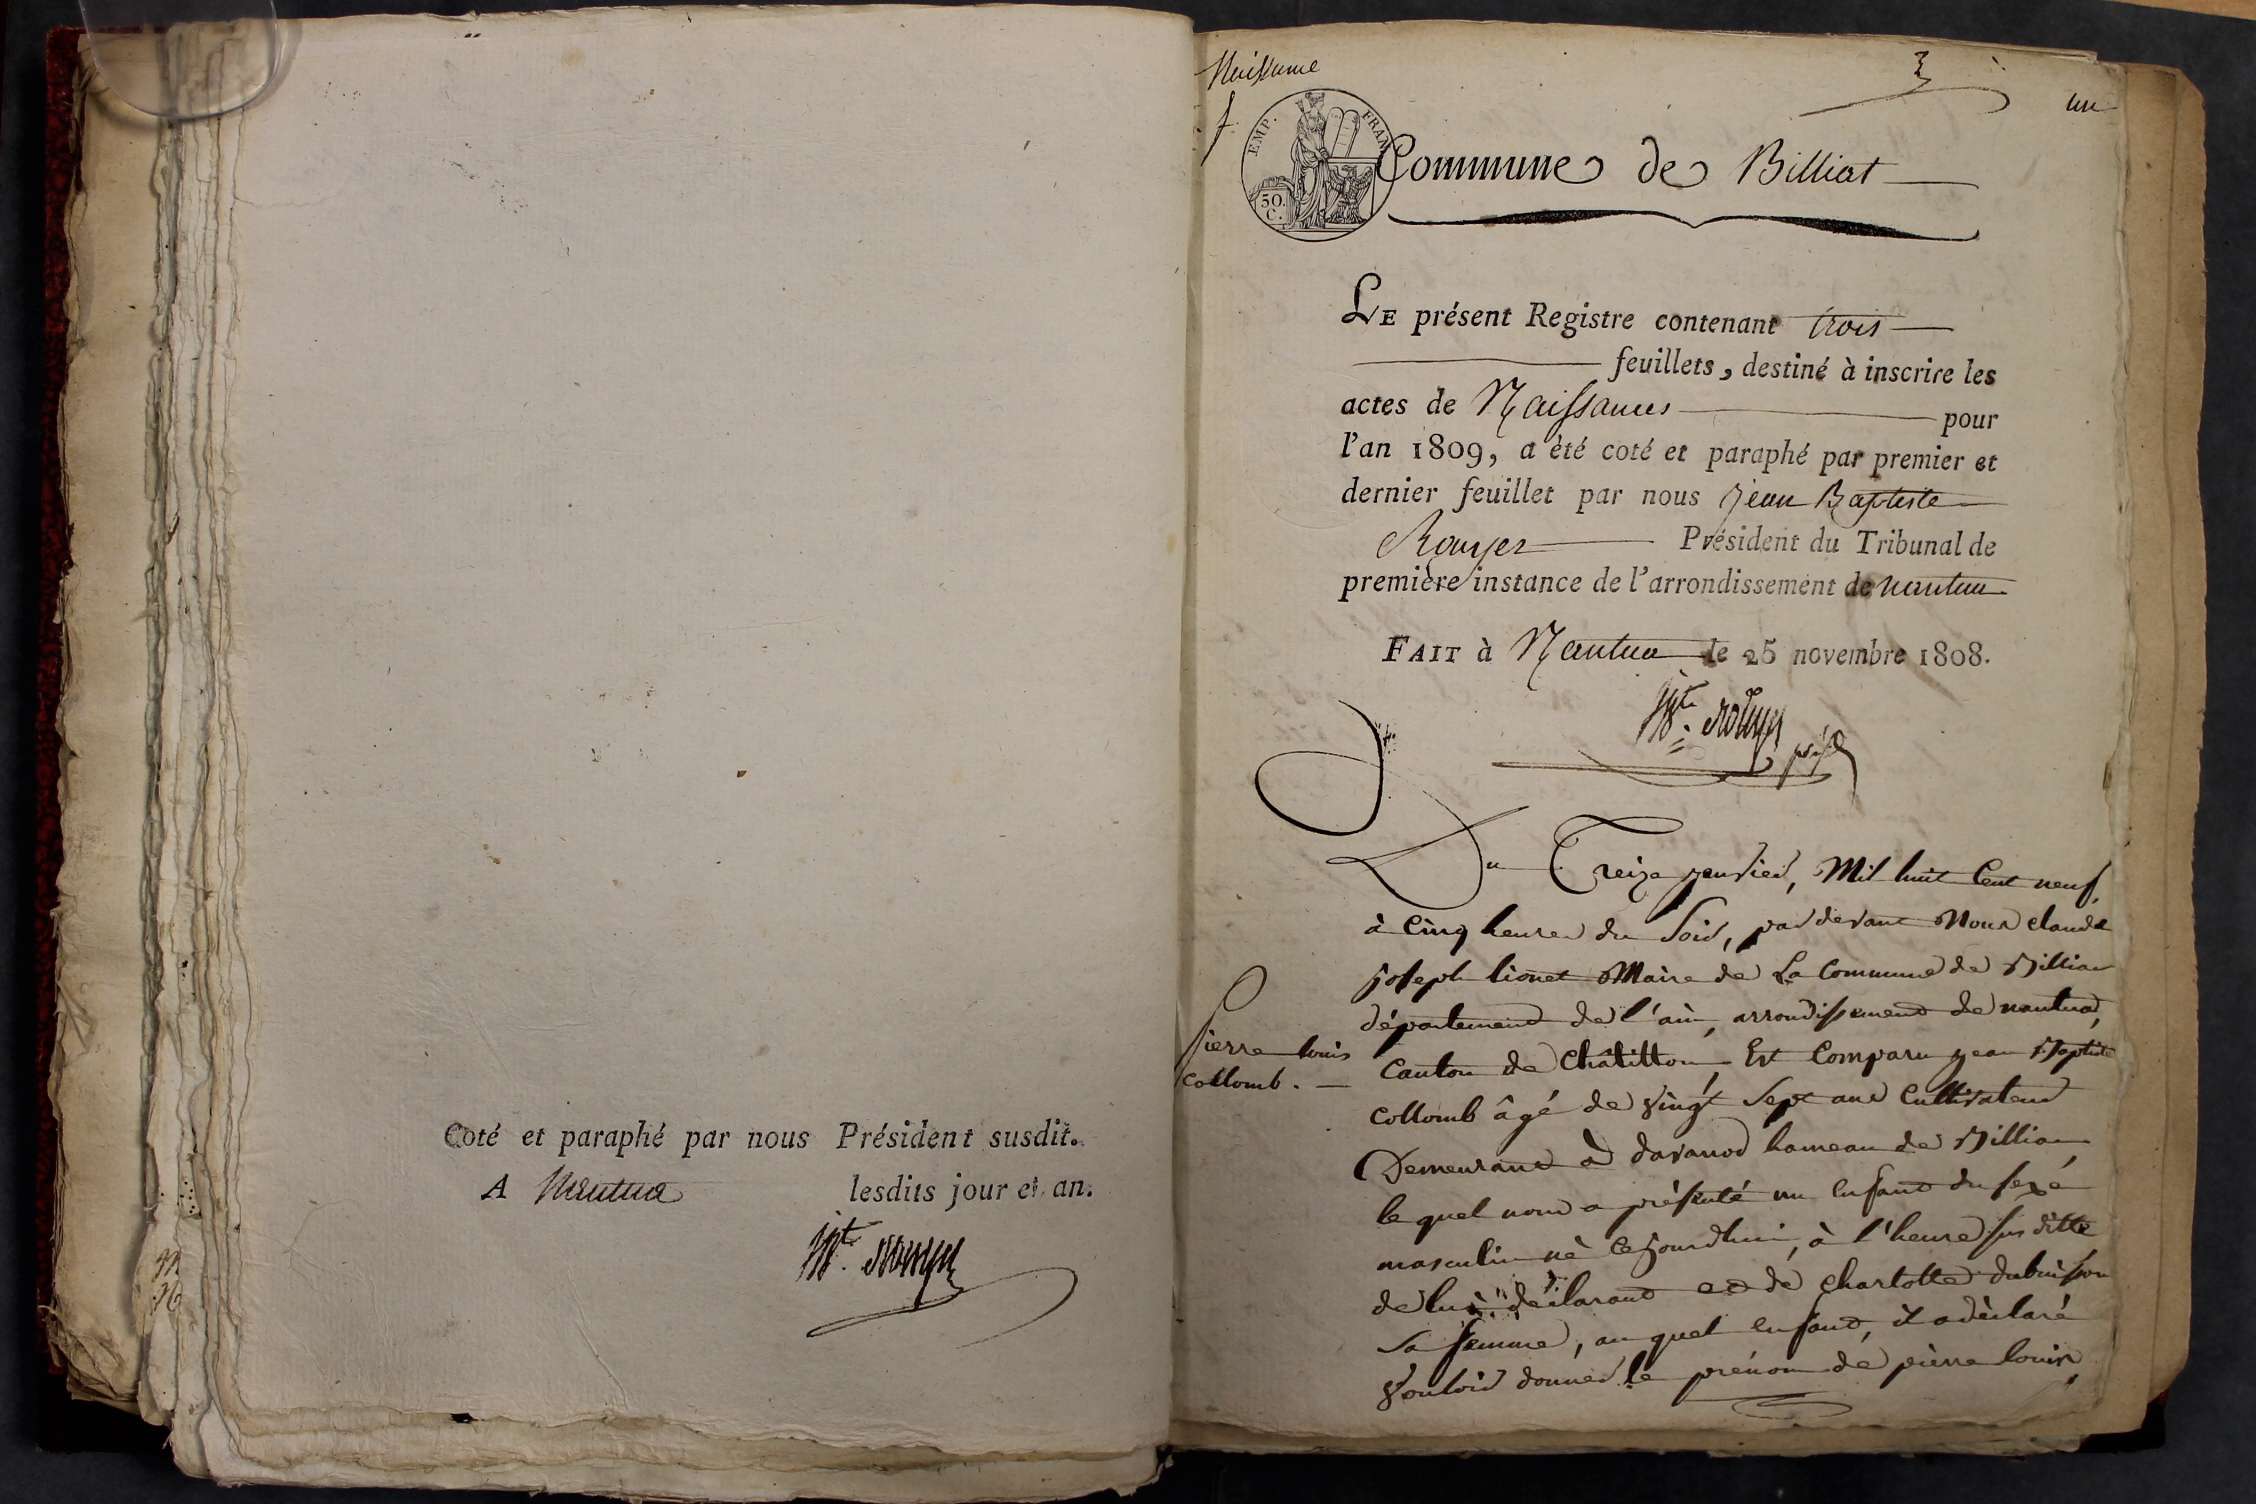 Coté et paraphé par nous Président susdit.
A Nantua lesdits jour et an.
Jn Bte. Rouyer
Naissance
un
EMP. FRAN
50. C.
Commune de Billiat
LE présent Registre contenant trois
feuillets, destiné à inscrire les
actes de Naissances pour
l'an 1809, a été coté et paraphé par premier et
dernier feuillet par nous Jean Baptiste
Rouyer Président du Tribunal de
première instance de l'arrondissement de nantua
FAIT à Nantua le 25 novembre 1808.
Rouyer
Du Treize janvier, Mil huit Cent neuf,
à Cinq heures du Soir, par devant Nous claude
joseph lionet Maire de La Commune de Billiat
département de l'ain, arrondissement de nantua,
Canton de Châtillon, Est Comparu jean Baptiste
Collomb âgé de vingt Sept ans Cultivateur
Demeurant à davanod hameau de Billiat,
lequel nous a présenté un Enfant du sexe
masculin né Cejourdhui, à l'heure susditte
de lui déclarant et de charlotte dubuisson
Sa femme, auquel Enfant, il a déclaré
vouloir donner le prénom de pierre louis,
Pierre louis
Collomb.